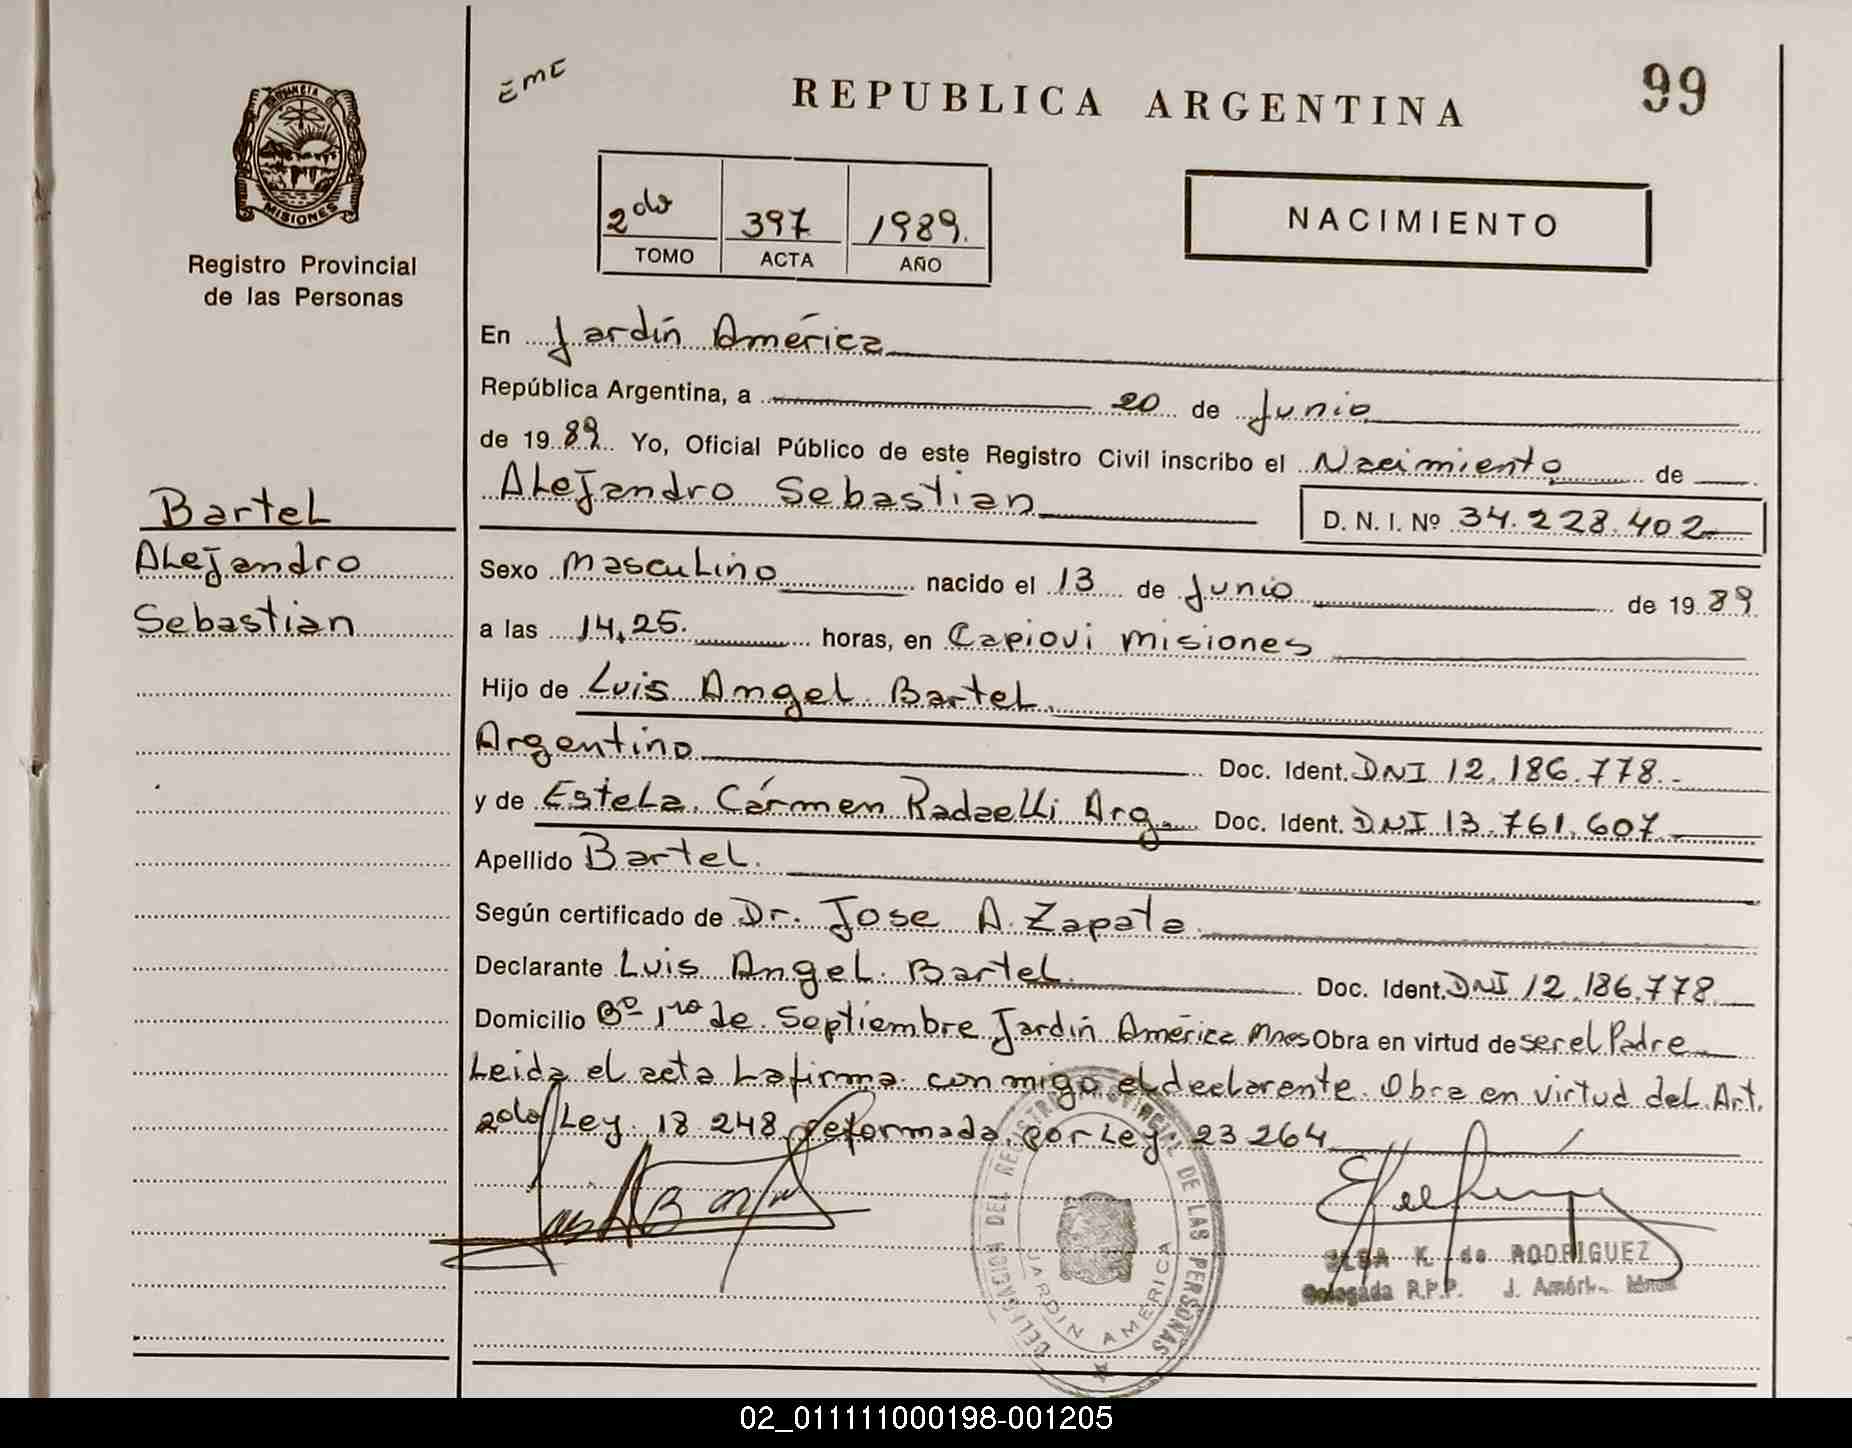 EMC
REPUBLICA ARGENTINA
99
PROVINCIA DE
MISIONES
Registro Provincial
de las Personas
2do 397 1989.
TOMO ACTA AÑO
NACIMIENTO
En Jardín América
República Argentina, a 20 de Junio
de 19 89 Yo, Oficial Público de este Registro Civil inscribo el Nacimiento de
Alejandro Sebastian D. N. I. Nº 34.228.402
Bartel
Alejandro
Sebastian
Sexo masculino nacido el 13 de Junio de 19 89
a las 14,25. horas, en Capiovi misiones
Hijo de Luis Angel Bartel
Argentino Doc. Ident. DNI 12.186.778
y de Estela Cármen Radaelli Arg. Doc. Ident. DNI 13.761.607
Apellido Bartel.
Según certificado de Dr. Jose A. Zapata
Declarante Luis Angel Bartel. Doc. Ident. DNI 12.186.778
Domicilio Bº 1ro de Septiembre Jardín América Mnes Obra en virtud de ser el Padre
Leida el acta la firma conmigo el declarente Obra en virtud del Art.
2do Ley 18 248 reformada por Ley 23 264
DELEGACION DEL REGISTRO PROVINCIAL DE LAS PERSONAS
JARDIN AMERICA
ELSA K. de RODRIGUEZ
Delegada R.P.P. J. Améri
02_011111000198-001205